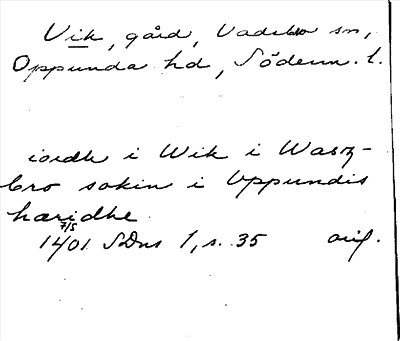 Vik, gård, Vadsbro sn,
Oppunda hd, Söderm. l.
iordh i Wik i Wasz-
bro sokin i Uppundis
hæridhe
7/5
1401 SDns 1, s. 35 orig.